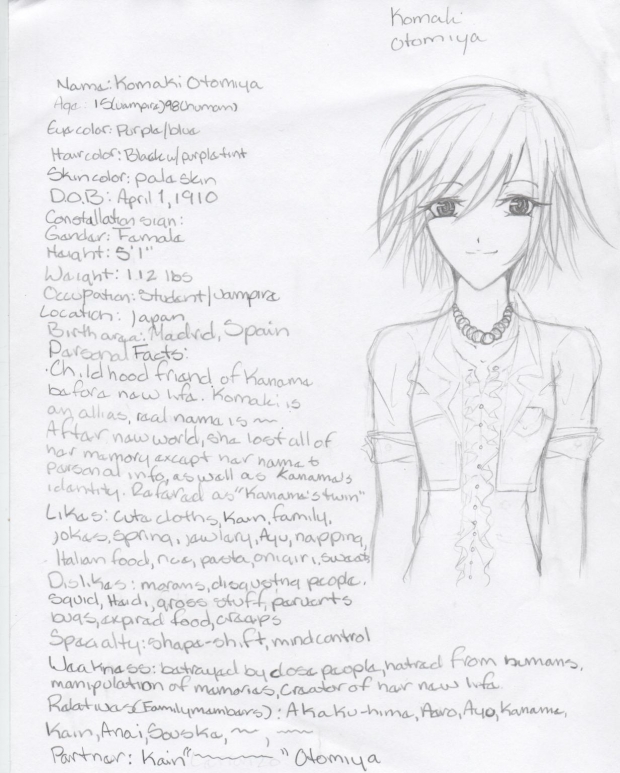 Komaki
Otomiya
Name: Komaki Otomiya
Age: 15(vampire)98(human)
Eye color: Purple/blue
Hair color: Black w/purple tint
Skin color: pale skin
D.O.B: April 1, 1910
Constallation sign:
Gender: Female
Height: 5'1"
Weight: 112 lbs
Occupation: Student/vampire
Location: Japan
Birth area: Madrid, Spain
Personal Facts:
· Childhood friend of Kaname
before new life. Komaki is
an allias, real name is ~
After new world, she lost all of
her memory except her name &
personal info, as well as Kaname's
identity. Refered as "Kaname's twin"
Likes: Cute cloths, Kain, family,
jokes, spring, jewlery, Ayo, napping,
Italian food, rice, pasta, onigiri, sweets
Dislikes: morans, disgusting people,
squid, gross stuff, perverts
bugs, expired food, creeps
Specialty: shape-shift, mind control
Weakness: betrayed by close people, hatred from humans,
manipulation of memories, Creator of her new life
Relatives(Family members): Akaku-hime, Aero, Ayo, Kaname,
Kain, Anai, Souske, ~, ~
Partner: Kain "~" Otomiya